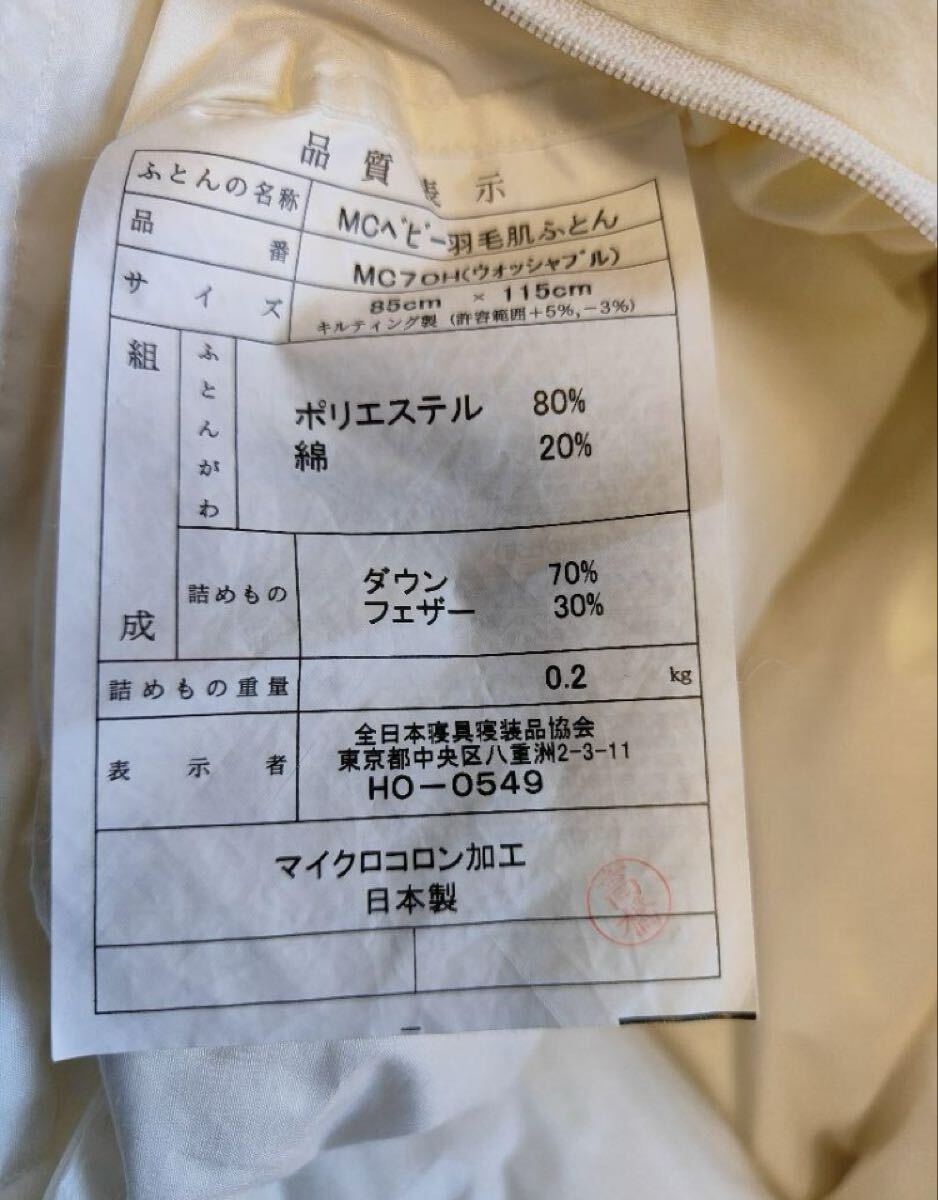 品質表示
ふとんの名称 MCベビー羽毛肌ふとん
品番 MC70H(ウォッシャブル)
サイズ 85cm × 115cm
キルティング製 (許容範囲+5%,-3%)
組成
ふとんがわ
ポリエステル 80%
綿 20%
詰めもの
ダウン 70%
フェザー 30%
詰めもの重量 0.2 kg
表示者
全日本寝具寝装品協会
東京都中央区八重洲2-3-11
HO-0549
マイクロコロン加工
日本製